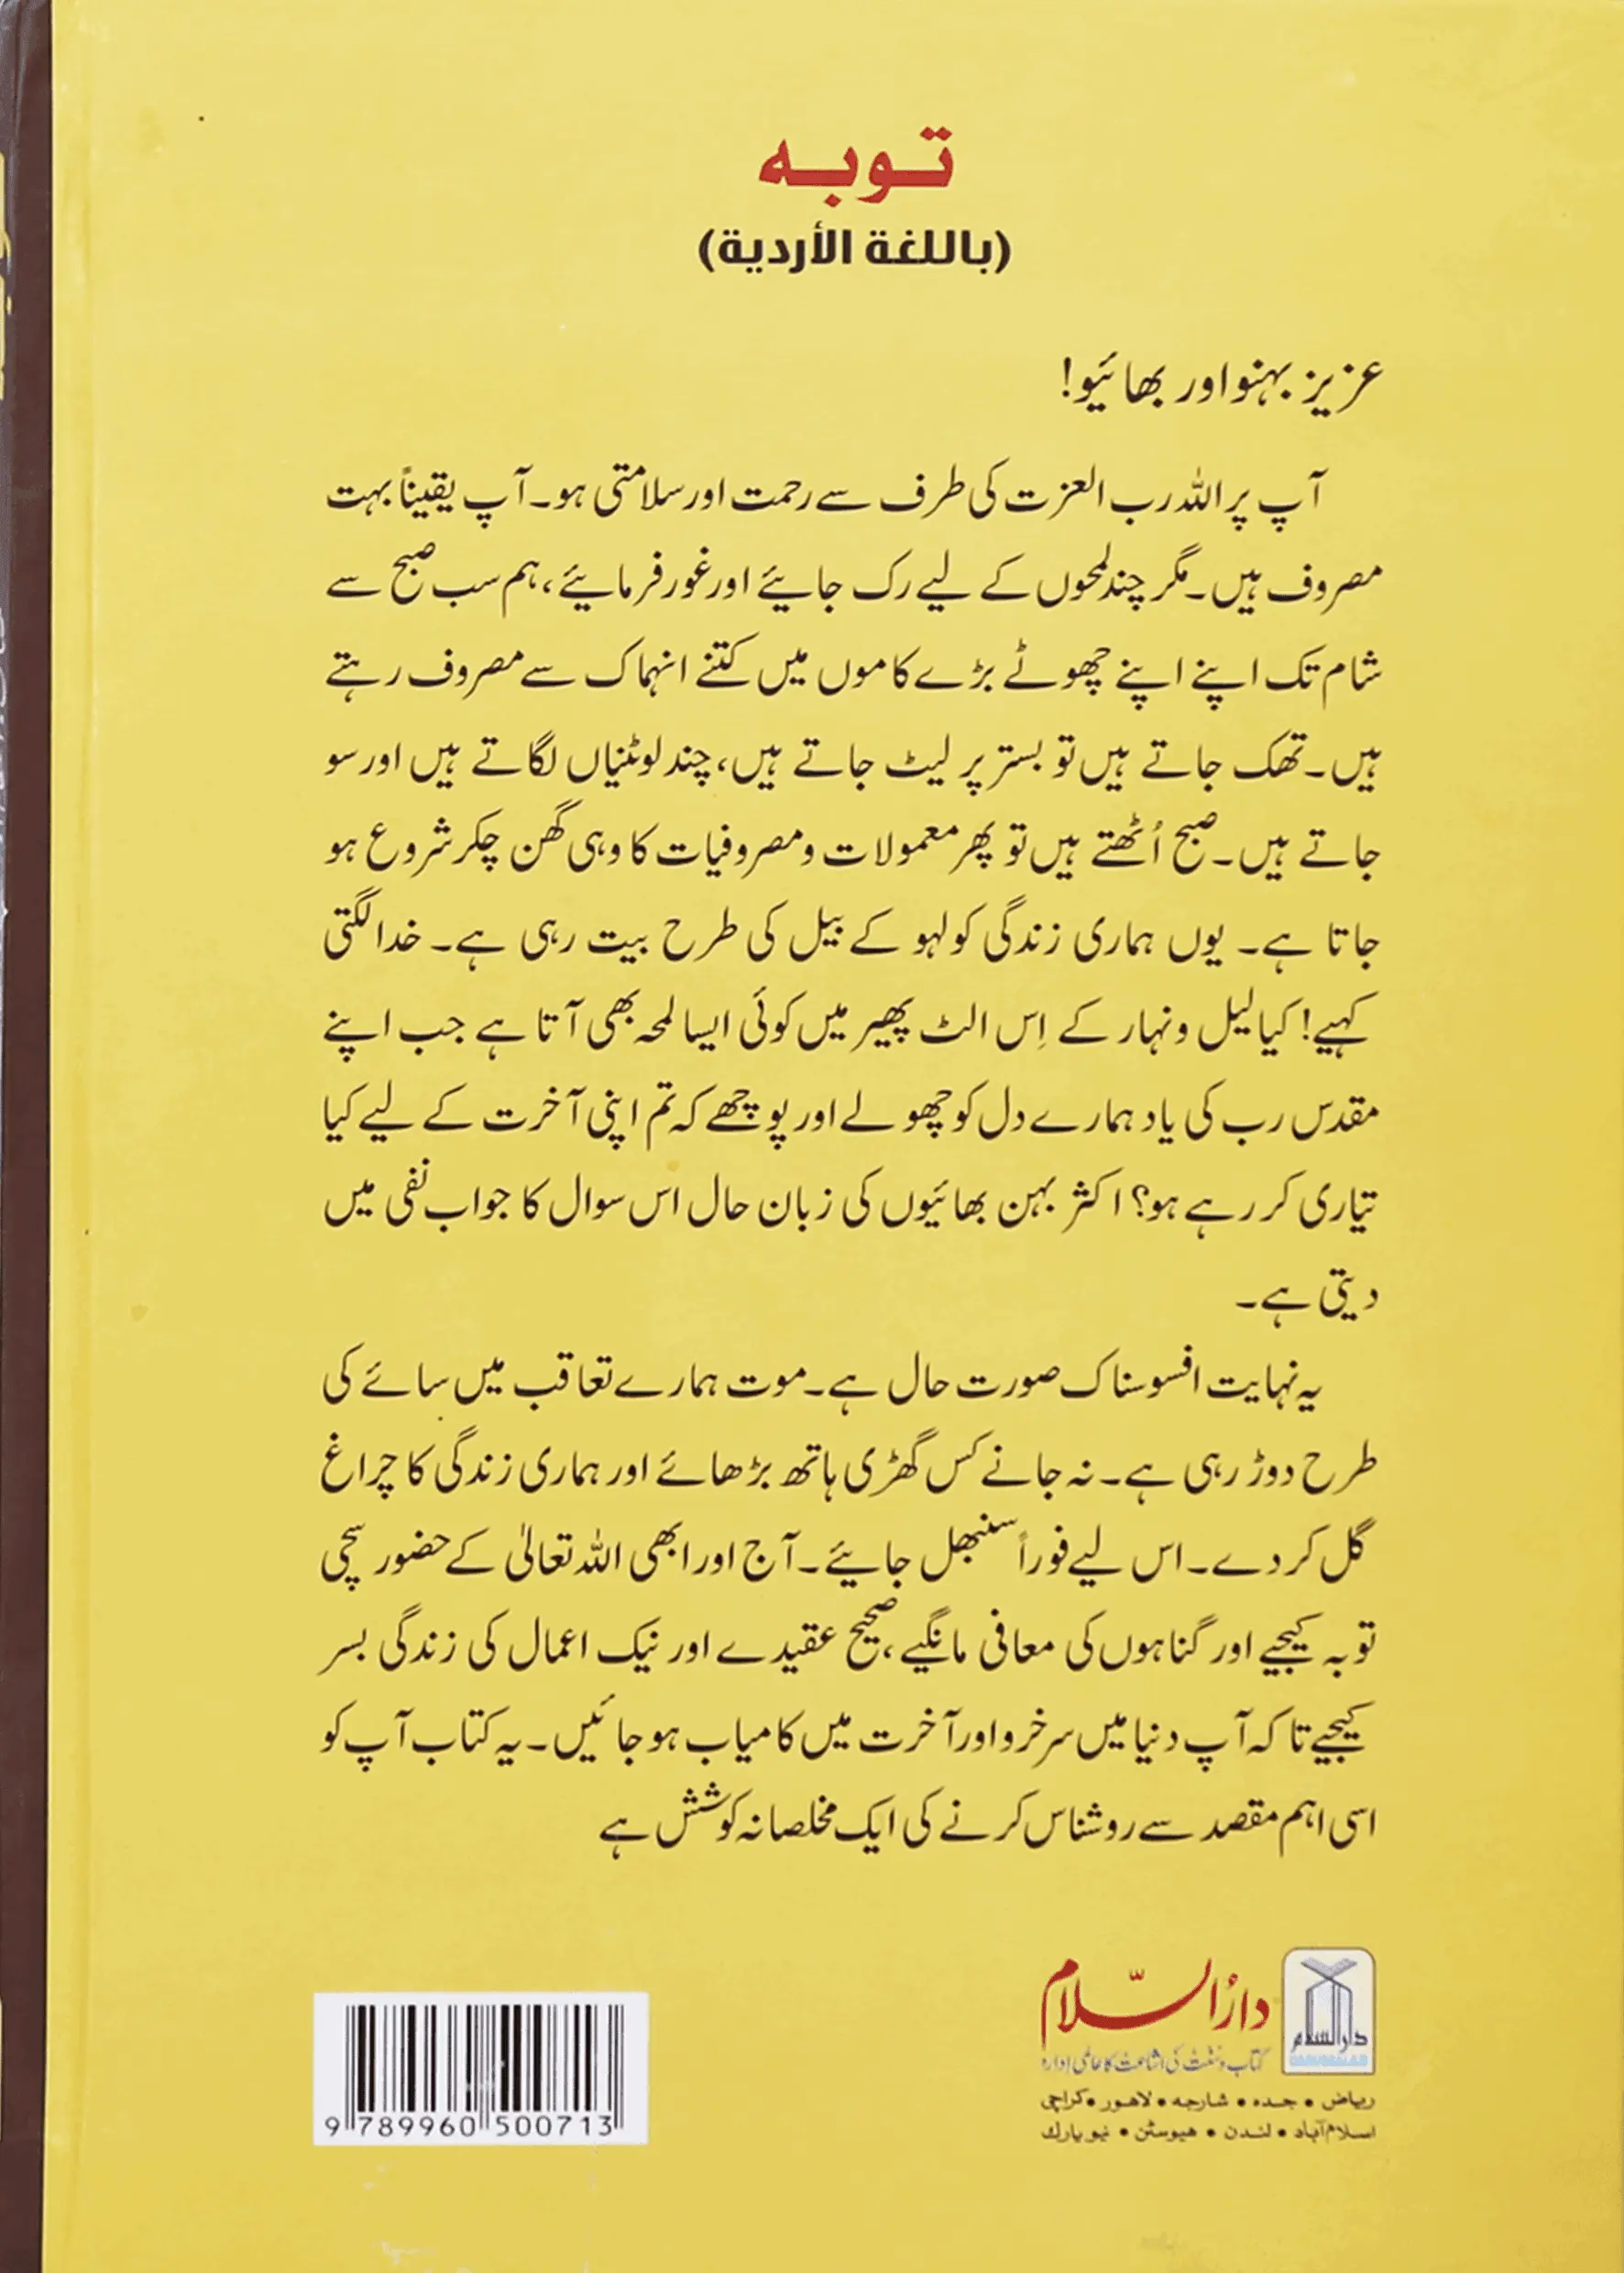 توبه
(باللغة الأردية)
عزیز بہنو اور بھائیو!
آپ پر اللہ رب العزت کی طرف سے رحمت اور سلامتی ہو۔ آپ یقیناً بہت
مصروف ہیں۔ مگر چند لمحوں کے لیے رک جایئے اور غور فرمایئے، ہم سب صبح سے
شام تک اپنے اپنے چھوٹے بڑے کاموں میں کتنے انہماک سے مصروف رہتے
ہیں۔ تھک جاتے ہیں تو بستر پر لیٹ جاتے ہیں، چند لوٹنیاں لگاتے ہیں اور سو
جاتے ہیں۔ صبح اُٹھتے ہیں تو پھر معمولات و مصروفیات کا وہی گھن چکر شروع ہو
جاتا ہے۔ یوں ہماری زندگی کولہو کے بیل کی طرح بیت رہی ہے۔ خدا لگتی
کہیے! کیا لیل و نہار کے اِس الٹ پھیر میں کوئی ایسا لمحہ بھی آتا ہے جب اپنے
مقدس رب کی یاد ہمارے دل کو چھولے اور پوچھے کہ تم اپنی آخرت کے لیے کیا
تیاری کر رہے ہو؟ اکثر بہن بھائیوں کی زبان حال اس سوال کا جواب نفی میں
دیتی ہے۔
یہ نہایت افسوسناک صورت حال ہے۔ موت ہمارے تعاقب میں سائے کی
طرح دوڑ رہی ہے۔ نہ جانے کس گھڑی ہاتھ بڑھائے اور ہماری زندگی کا چراغ
گل کر دے۔ اس لیے فوراً سنبھل جایئے۔ آج اور ابھی اللہ تعالیٰ کے حضور سچی
توبہ کیجیے اور گناہوں کی معافی مانگیے، صحیح عقیدے اور نیک اعمال کی زندگی بسر
کیجیے تا کہ آپ دنیا میں سرخرو اور آخرت میں کامیاب ہو جائیں۔ یہ کتاب آپ کو
اسی اہم مقصد سے روشناس کرنے کی ایک مخلصانہ کوشش ہے
دارُالسّلام
کتاب و سنت کی اشاعت کا عالمی ادارہ
ریاض • جدہ • شارجہ • لاہور • کراچی
اسلام آباد • لندن • ہیوسٹن • نیو یارک
دارالسلام
DARUSSALAM
9 789960 500713